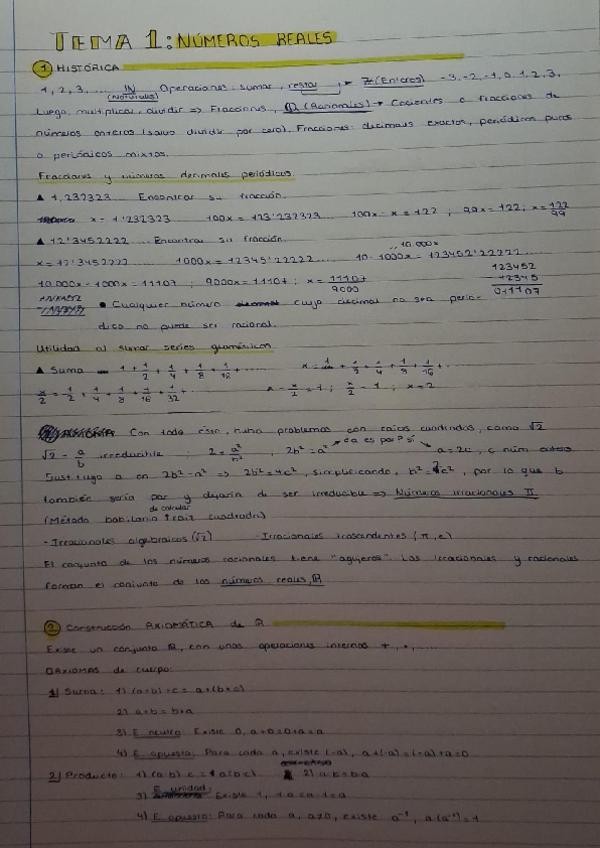 TEMA 1: NÚMEROS REALES
1 HISTÓRICA
1, 2, 3, .... ℕ (Naturales) Operaciones: sumar, restar → Z (Enteros) -3, -2, -1, 0, 1, 2, 3,
Luego, multiplicar, dividir => Fracciones, Q (Racionales) → Cocientes o fracciones de
números enteros (salvo dividir por cero). Fracciones: decimales exactos, periódicos puros
o periódicos mixtos.
Fracciones y números decimales periódicos
▲ 1,232323 Encontrar su fracción.
x = 1'232323 100x = 123'232323 100x - x = 122 ; 99x = 122 ; x = 122/99
▲ 12'3452222 ... Encontrar su fracción.
x = 12'3452222 1000x = 12345'22222 ... 10·1000x = 123452'22222 ... 10.000x
10.000x - 1000x = 11107 ; 9000x = 11107 ; x = 11107/9000
123452
- 12345
011107
• Cualquier número cuyo decimal no sea perió-
dico no puede ser racional.
Utilidad al sumar series geométricas
▲ Suma 1 + 1/2 + 1/4 + 1/8 + 1/16 + ...... x = 1 + 1/2 + 1/4 + 1/8 + 1/16 + ..
x/2 = 1/2 + 1/4 + 1/8 + 1/16 + 1/32 + .. x - x/2 = 1 ; x/2 = 1 ; x = 2
Con todo esto, hubo problemas con raíces cuadradas, como √2
√2 = a/b irreducible ; 2 = a²/b² , 2b² = a² → a es par sí → a = 2c, c núm entero
Sustituyo a en 2b² = a² => 2b² = 4c², simplificando, b² = 2c², por lo que b
también sería par y dejaría de ser irreducible => Números irracionales II
(Método babilonio de calcular raíz cuadrada)
- Irracionales algebraicos (√2) - Irracionales trascendentes (π, e)
El conjunto de los números racionales tiene "agujeros". Los irracionales y racionales
forman el conjunto de los números reales, ℝ
2 Construcción AXIOMÁTICA de ℝ
Existe un conjunto ℝ, con unas operaciones internas +, ·, ......
AXIOMAS de cuerpo:
1) Suma: 1) (a+b)+c = a+(b+c)
2) a+b = b+a
3) E. neutro: Existe 0, a+0=0+a=a
4) E. opuesto: Para cada a, existe (-a), a+(-a)=(-a)+a=0
2) Producto: 1) (a·b)·c = a(b·c) 2) a·b = b·a
3) E. unidad: Existe 1, 1·a=a·1=a
4) E. opuesto: Para cada a, a≠0, existe a⁻¹, a(a⁻¹)=1